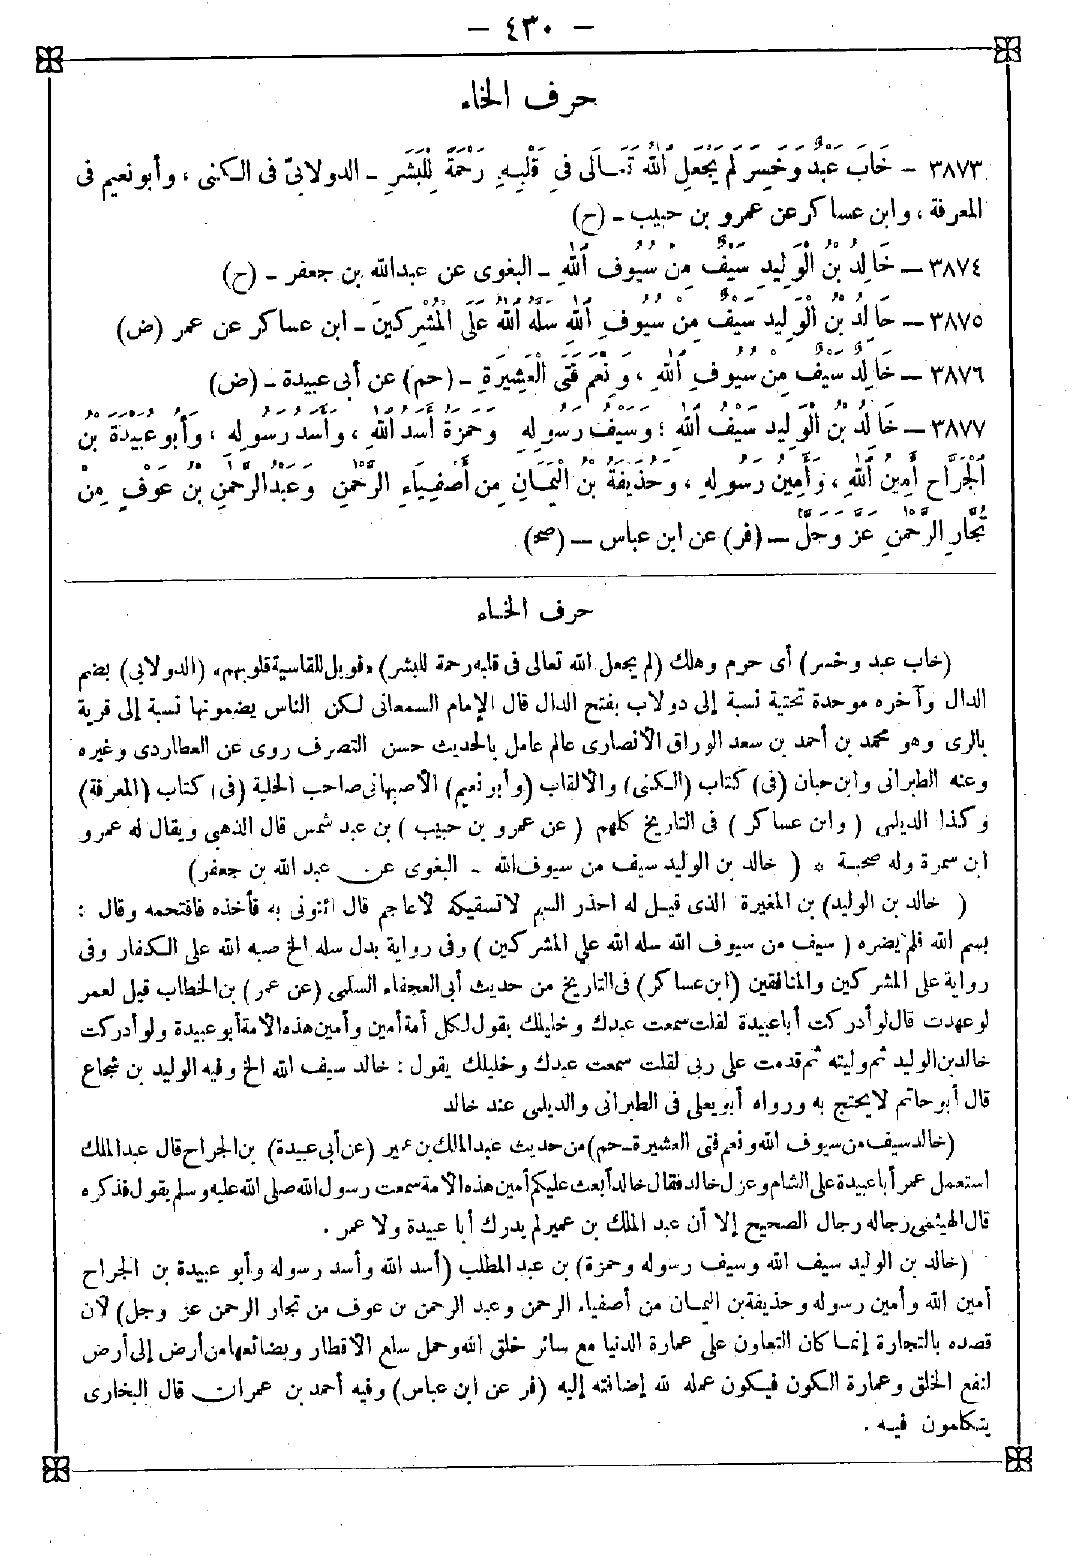 — ٤٣٠ —
حرف الخاء
٣٨٧٣ — خَابَ عَبْدٌ وَخَسِرَ لَمْ يَجْعَلِ اللهُ تَعَالَى فِي قَلْبِهِ رَحْمَةً لِلْبَشَرِ - الدولابىّ فى الكنى ، وأبو نعيم فى
المعرفة ، وابن عساكر عن عمرو بن حبيب - (ح)
٣٨٧٤ — خَالِدُ بْنُ الْوَلِيدِ سَيْفٌ مِنْ سُيُوفِ اللهِ - البغوى عن عبد الله بن جعفر - (ح)
٣٨٧٥ — خَالِدُ بْنُ الْوَلِيدِ سَيْفٌ مِنْ سُيُوفِ اللهِ سَلَّهُ اللهُ عَلَى الْمُشْرِكِينَ - ابن عساكر عن عمر (ض)
٣٨٧٦ — خَالِدٌ سَيْفٌ مِنْ سُيُوفِ اللهِ ، وَنِعْمَ فَتَى الْعَشِيرَةِ - (حم) عن أبى عبيدة - (ض)
٣٨٧٧ — خَالِدُ بْنُ الْوَلِيدِ سَيْفُ اللهِ ؛ وَسَيْفُ رَسُولِهِ وَحَمْزَةُ أَسَدُ اللهِ ، وَأَسَدُ رَسُولِهِ ، وَأَبُو عُبَيْدَةَ بْنُ
الْجَرَّاحِ أَمِينُ اللهِ ، وَأَمِينُ رَسُولِهِ ، وَحُذَيْفَةُ بْنُ الْيَمَانِ مِنْ أَصْفِيَاءِ الرَّحْمٰنِ وَعَبْدُ الرَّحْمٰنِ بْنُ عَوْفٍ مِنْ
تُجَّارِ الرَّحْمٰنِ عَزَّ وَجَلَّ — (فر) عن ابن عباس — (صح)
حرف الخاء
(خاب عبد وخسر) أى حرم وهلك (لم يجعل الله تعالى فى قلبه رحمة للبشر) «فويل للقاسية قلوبهم» (الدولابى) بضم
الدال وآخره موحدة تحتية نسبة إلى دولاب بفتح الدال قال الإمام السمعانى لكن الناس يضمونها نسبة إلى قرية
بالرى وهو محمد بن أحمد بن سعد الوراق الأنصارى عالم عامل بالحديث حسن التصرف روى عن العطاردى وغيره
وعنه الطبرانى وابن حبان (فى) كتاب (الكنى) والألقاب (وأبو نعيم) الأصبهانى صاحب الحلية (فى) كتاب (المعرفة)
وكذا الديلمى ( وابن عساكر ) فى التاريخ كلهم ( عن عمرو بن حبيب ) بن عبد شمس قال الذهبى ويقال له عمرو
ابن سمرة وله صحبة * ( خالد بن الوليد سيف من سيوف الله - البغوى عن عبد الله بن جعفر)
( خالد بن الوليد) بن المغيرة الذى قيل له احذر السم لا تسقيكه الأعاجم قال ائتونى به فأخذه فاقتحمه وقال :
بسم الله فلم يضره ( سيف من سيوف الله سله الله على المشركين ) وفى رواية بدل سله الخ صبه الله على الكفار وفى
رواية على المشركين والمنافقين (ابن عساكر) فى التاريخ من حديث أبى العجفاء السلمى (عن عمر) بن الخطاب قيل لعمر
لو عهدت قال لو أدركت أبا عبيدة لقلت سمعت عبدك وخليلك يقول لكل أمة أمين وأمين هذه الأمة أبو عبيدة ولو أدركت
خالد بن الوليد ثم وليته ثم قدمت على ربى لقلت سمعت عبدك وخليلك يقول : خالد سيف الله الخ وفيه الوليد بن شجاع
قال أبو حاتم لا يحتج به ورواه أبو يعلى فى الطبرانى والديلمى عند خالد
(خالد سيف من سيوف الله ونعم فتى العشيرة - حم) من حديث عبد الملك بن عمير (عن أبى عبيدة) بن الجراح قال عبد الملك
استعمل عمر أبا عبيدة على الشام وعزل خالد فقال خالد أبعث عليكم أمين هذه الأمة سمعت رسول الله صلى الله عليه وسلم يقول فذكره
قال الهيثمى رجاله رجال الصحيح إلا أن عبد الملك بن عمير لم يدرك أبا عبيدة ولا عمر .
(خالد بن الوليد سيف الله وسيف رسوله وحمزة) بن عبد المطلب (أسد الله وأسد رسوله وأبو عبيدة بن الجراح
أمين الله وأمين رسوله وحذيفة بن اليمان من أصفياء الرحمن وعبد الرحمن بن عوف من تجار الرحمن عز وجل) لأن
قصده بالتجارة إنما كان التعاون على عمارة الدنيا مع سائر خلق الله وحمل سلع الأقطار وبضائعها من أرض إلى أرض
انفع الخلق وعمارة الكون فيكون عمله لله إضافته إليه (فر عن ابن عباس) وفيه أحمد بن عمران قال البخارى
يتكلمون فيه .